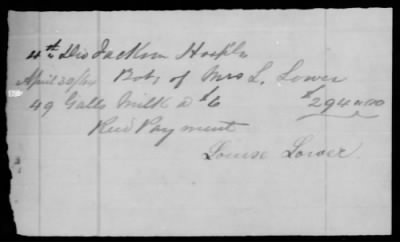 4th Div Jackson Hospl
April 30/64 Bot of Mrs L. Lower
49 Galls Milk a $6 $294.00
Recd Payment
Louise Lower